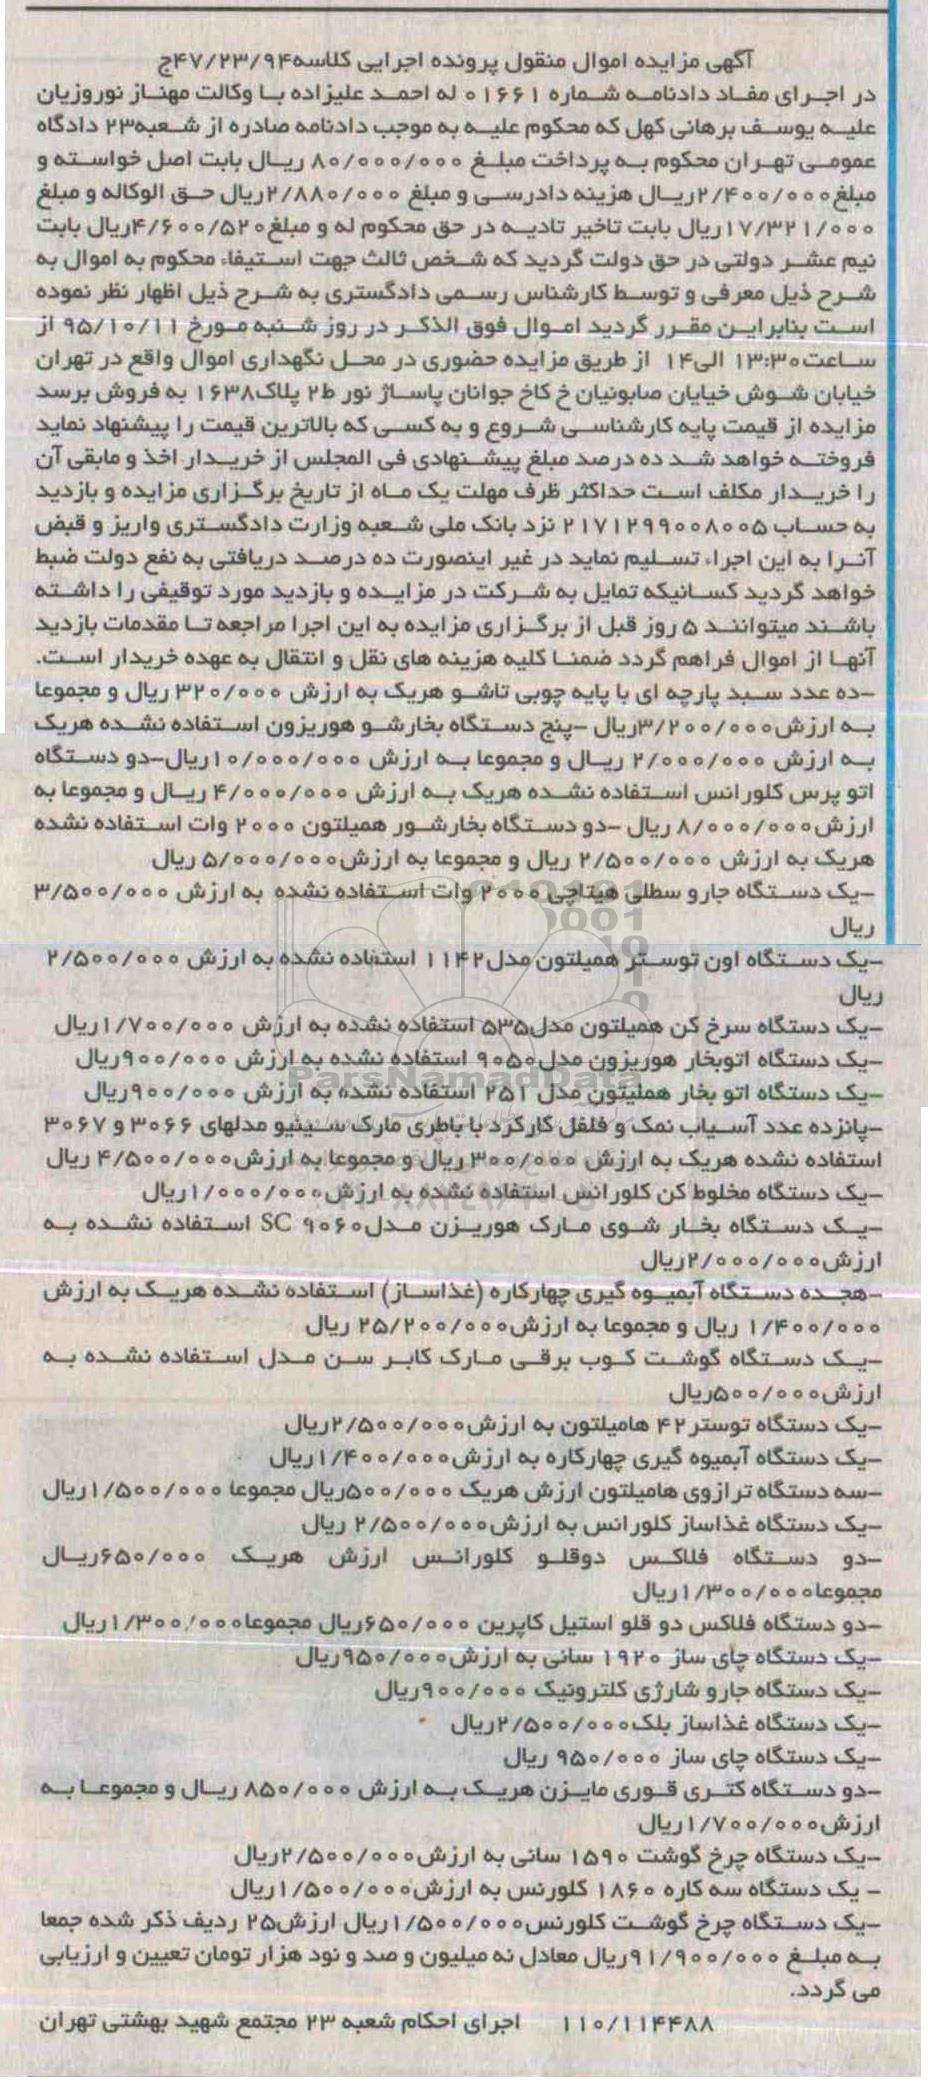 آگهی مزایده اموال منقول پرونده اجرایی کلاسه۴۷/۲۳/۹۴ج
در اجرای مفاد دادنامه شماره ۰۱۶۶۱ له احمد علیزاده با وکالت مهناز نوروزیان
علیه یوسف برهانی کهل که محکوم علیه به موجب دادنامه صادره از شعبه۲۳ دادگاه
عمومی تهران محکوم به پرداخت مبلغ ۸۰/۰۰۰/۰۰۰ ریال بابت اصل خواسته و
مبلغ۲/۴۰۰/۰۰۰ریال هزینه دادرسی و مبلغ ۲/۸۸۰/۰۰۰ریال حق الوکاله و مبلغ
۱۷/۳۲۱/۰۰۰ریال بابت تاخیر تادیه در حق محکوم له و مبلغ۴/۶۰۰/۵۲۰ریال بابت
نیم عشر دولتی در حق دولت گردید که شخص ثالث جهت استیفاء محکوم به اموال به
شرح ذیل معرفی و توسط کارشناس رسمی دادگستری به شرح ذیل اظهار نظر نموده
است بنابراین مقرر گردید اموال فوق الذکر در روز شنبه مورخ ۹۵/۱۰/۱۱ از
ساعت۱۳:۳۰ الی۱۴ از طریق مزایده حضوری در محل نگهداری اموال واقع در تهران
خیابان شوش خیابان صابونیان خ کاخ جوانان پاساژ نور ط۲ پلاک۱۶۳۸ به فروش برسد
مزایده از قیمت پایه کارشناسی شروع و به کسی که بالاترین قیمت را پیشنهاد نماید
فروخته خواهد شد ده درصد مبلغ پیشنهادی فی المجلس از خریدار اخذ و مابقی آن
را خریدار مکلف است حداکثر ظرف مهلت یک ماه از تاریخ برگزاری مزایده و بازدید
به حساب ۲۱۷۱۲۹۹۰۰۸۰۰۵ نزد بانک ملی شعبه وزارت دادگستری واریز و قبض
آنرا به این اجراء تسلیم نماید در غیر اینصورت ده درصد دریافتی به نفع دولت ضبط
خواهد گردید کسانیکه تمایل به شرکت در مزایده و بازدید مورد توقیفی را داشته
باشند میتوانند ۵ روز قبل از برگزاری مزایده به این اجرا مراجعه تا مقدمات بازدید
آنها از اموال فراهم گردد ضمنا کلیه هزینه های نقل و انتقال به عهده خریدار است.
-ده عدد سبد پارچه ای با پایه چوبی تاشو هریک به ارزش ۳۲۰/۰۰۰ ریال و مجموعا
به ارزش۳/۲۰۰/۰۰۰ریال -پنج دستگاه بخارشو هوریزون استفاده نشده هریک
به ارزش ۲/۰۰۰/۰۰۰ ریال و مجموعا به ارزش ۱۰/۰۰۰/۰۰۰ریال-دو دستگاه
اتو پرس کلورانس استفاده نشده هریک به ارزش ۴/۰۰۰/۰۰۰ ریال و مجموعا به
ارزش۸/۰۰۰/۰۰۰ ریال -دو دستگاه بخارشور همیلتون ۲۰۰۰ وات استفاده نشده
هریک به ارزش ۲/۵۰۰/۰۰۰ ریال و مجموعا به ارزش۵/۰۰۰/۰۰۰ ریال
-یک دستگاه جارو سطلی هیتاچی ۲۰۰۰ وات استفاده نشده به ارزش ۳/۵۰۰/۰۰۰
ریال
-یک دستگاه اون توستر همیلتون مدل۱۱۴۲ استفاده نشده به ارزش ۲/۵۰۰/۰۰۰
ریال
-یک دستگاه سرخ کن همیلتون مدل۵۳۵ استفاده نشده به ارزش ۱/۷۰۰/۰۰۰ریال
-یک دستگاه اتوبخار هوریزون مدل۹۰۵۰ استفاده نشده به ارزش ۹۰۰/۰۰۰ریال
-یک دستگاه اتو بخار هملیتون مدل ۲۵۱ استفاده نشده به ارزش ۹۰۰/۰۰۰ریال
-پانزده عدد آسیاب نمک و فلفل کارکرد با باطری مارک سینیو مدلهای ۳۰۶۶ و ۳۰۶۷
استفاده نشده هریک به ارزش ۳۰۰/۰۰۰ ریال و مجموعا به ارزش۴/۵۰۰/۰۰۰ ریال
-یک دستگاه مخلوط کن کلورانس استفاده نشده به ارزش۱/۰۰۰/۰۰۰ریال
-یک دستگاه بخار شوی مارک هوریزن مدل۹۰۶۰ SC استفاده نشده به
ارزش۲/۰۰۰/۰۰۰ریال
-هجده دستگاه آبمیوه گیری چهارکاره (غذاساز) استفاده نشده هریک به ارزش
۱/۴۰۰/۰۰۰ ریال و مجموعا به ارزش۲۵/۲۰۰/۰۰۰ ریال
-یک دستگاه گوشت کوب برقی مارک کابر سن مدل استفاده نشده به
ارزش۵۰۰/۰۰۰ریال
-یک دستگاه توستر۴۲ هامیلتون به ارزش۲/۵۰۰/۰۰۰ریال
-یک دستگاه آبمیوه گیری چهارکاره به ارزش۱/۴۰۰/۰۰۰ریال
-سه دستگاه ترازوی هامیلتون ارزش هریک ۵۰۰/۰۰۰ریال مجموعا ۱/۵۰۰/۰۰۰ریال
-یک دستگاه غذاساز کلورانس به ارزش۲/۵۰۰/۰۰۰ ریال
-دو دستگاه فلاکس دوقلو کلورانس ارزش هریک ۶۵۰/۰۰۰ریال
مجموعا۱/۳۰۰/۰۰۰ریال
-دو دستگاه فلاکس دو قلو استیل کاپرین ۶۵۰/۰۰۰ریال مجموعا۱/۳۰۰/۰۰۰ریال
-یک دستگاه چای ساز ۱۹۲۰ سانی به ارزش۹۵۰/۰۰۰ریال
-یک دستگاه جارو شارژی کلترونیک ۹۰۰/۰۰۰ریال
-یک دستگاه غذاساز بلک۲/۵۰۰/۰۰۰ریال
-یک دستگاه چای ساز ۹۵۰/۰۰۰ ریال
-دو دستگاه کتری قوری مایزن هریک به ارزش ۸۵۰/۰۰۰ ریال و مجموعا به
ارزش۱/۷۰۰/۰۰۰ریال
-یک دستگاه چرخ گوشت ۱۵۹۰ سانی به ارزش۲/۵۰۰/۰۰۰ریال
- یک دستگاه سه کاره ۱۸۶۰ کلورنس به ارزش۱/۵۰۰/۰۰۰ریال
-یک دستگاه چرخ گوشت کلورنس۱/۵۰۰/۰۰۰ریال ارزش۲۵ ردیف ذکر شده جمعا
به مبلغ ۹۱/۹۰۰/۰۰۰ریال معادل نه میلیون و صد و نود هزار تومان تعیین و ارزیابی
می گردد.
۱۱۰/۱۱۴۴۸۸ اجرای احکام شعبه ۲۳ مجتمع شهید بهشتی تهران
ParsNamadData